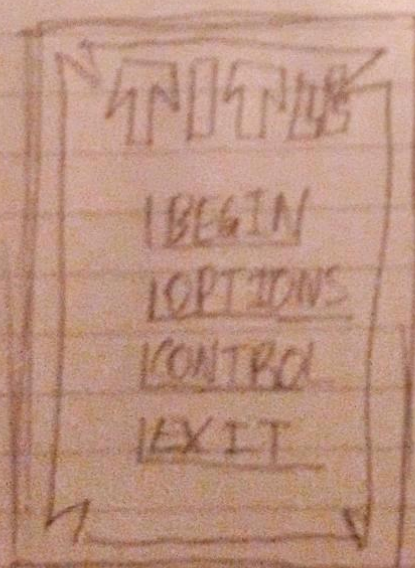 TITLE
BEGIN
OPTIONS
CONTROL
EXIT